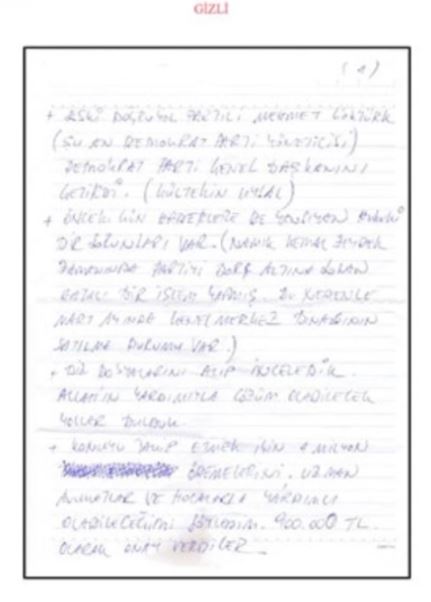 GİZLİ
(1)
+ ESKİ DOĞRUYOL PARTİLİ MEHMET GÖKTÜRK
(ŞU AN DEMOKRAT PARTİ YÖNETİCİSİ)
DEMOKRAT PARTİ GENEL BAŞKANINI
GETİRDİ. (GÜLTEKİN UYSAL)
+ ÖNCEKİ GÜN HABERLERE DE YANSIYAN
BİR SORUNLARI VAR. (NAMIK KEMAL ZEYBEK
ZAMANINDA PARTİYİ BORÇ ALTINA SOKAN
HATALI BİR İŞLEM YAPMIŞ. BU NEDENLE
MART AYINDA GENEL MERKEZ BİNASININ
SATILMA DURUMU VAR.)
+ BİZ DOSYALARINI ALIP İNCELEDİK.
ALLAH'IN YARDIMIYLA ÇÖZÜM OLABİLECEK
YOLLAR BULDUK.
+ KONUYU TAKİP ETMEK İÇİN 1 MİLYON
ÖDEMELERİNİ, UZMAN
AVUKATLAR VE HOCALARLA YARDIMCI
OLABİLECEĞİMİ SÖYLEDİM. 900.000 TL.
OLARAK ONAY VERDİLER